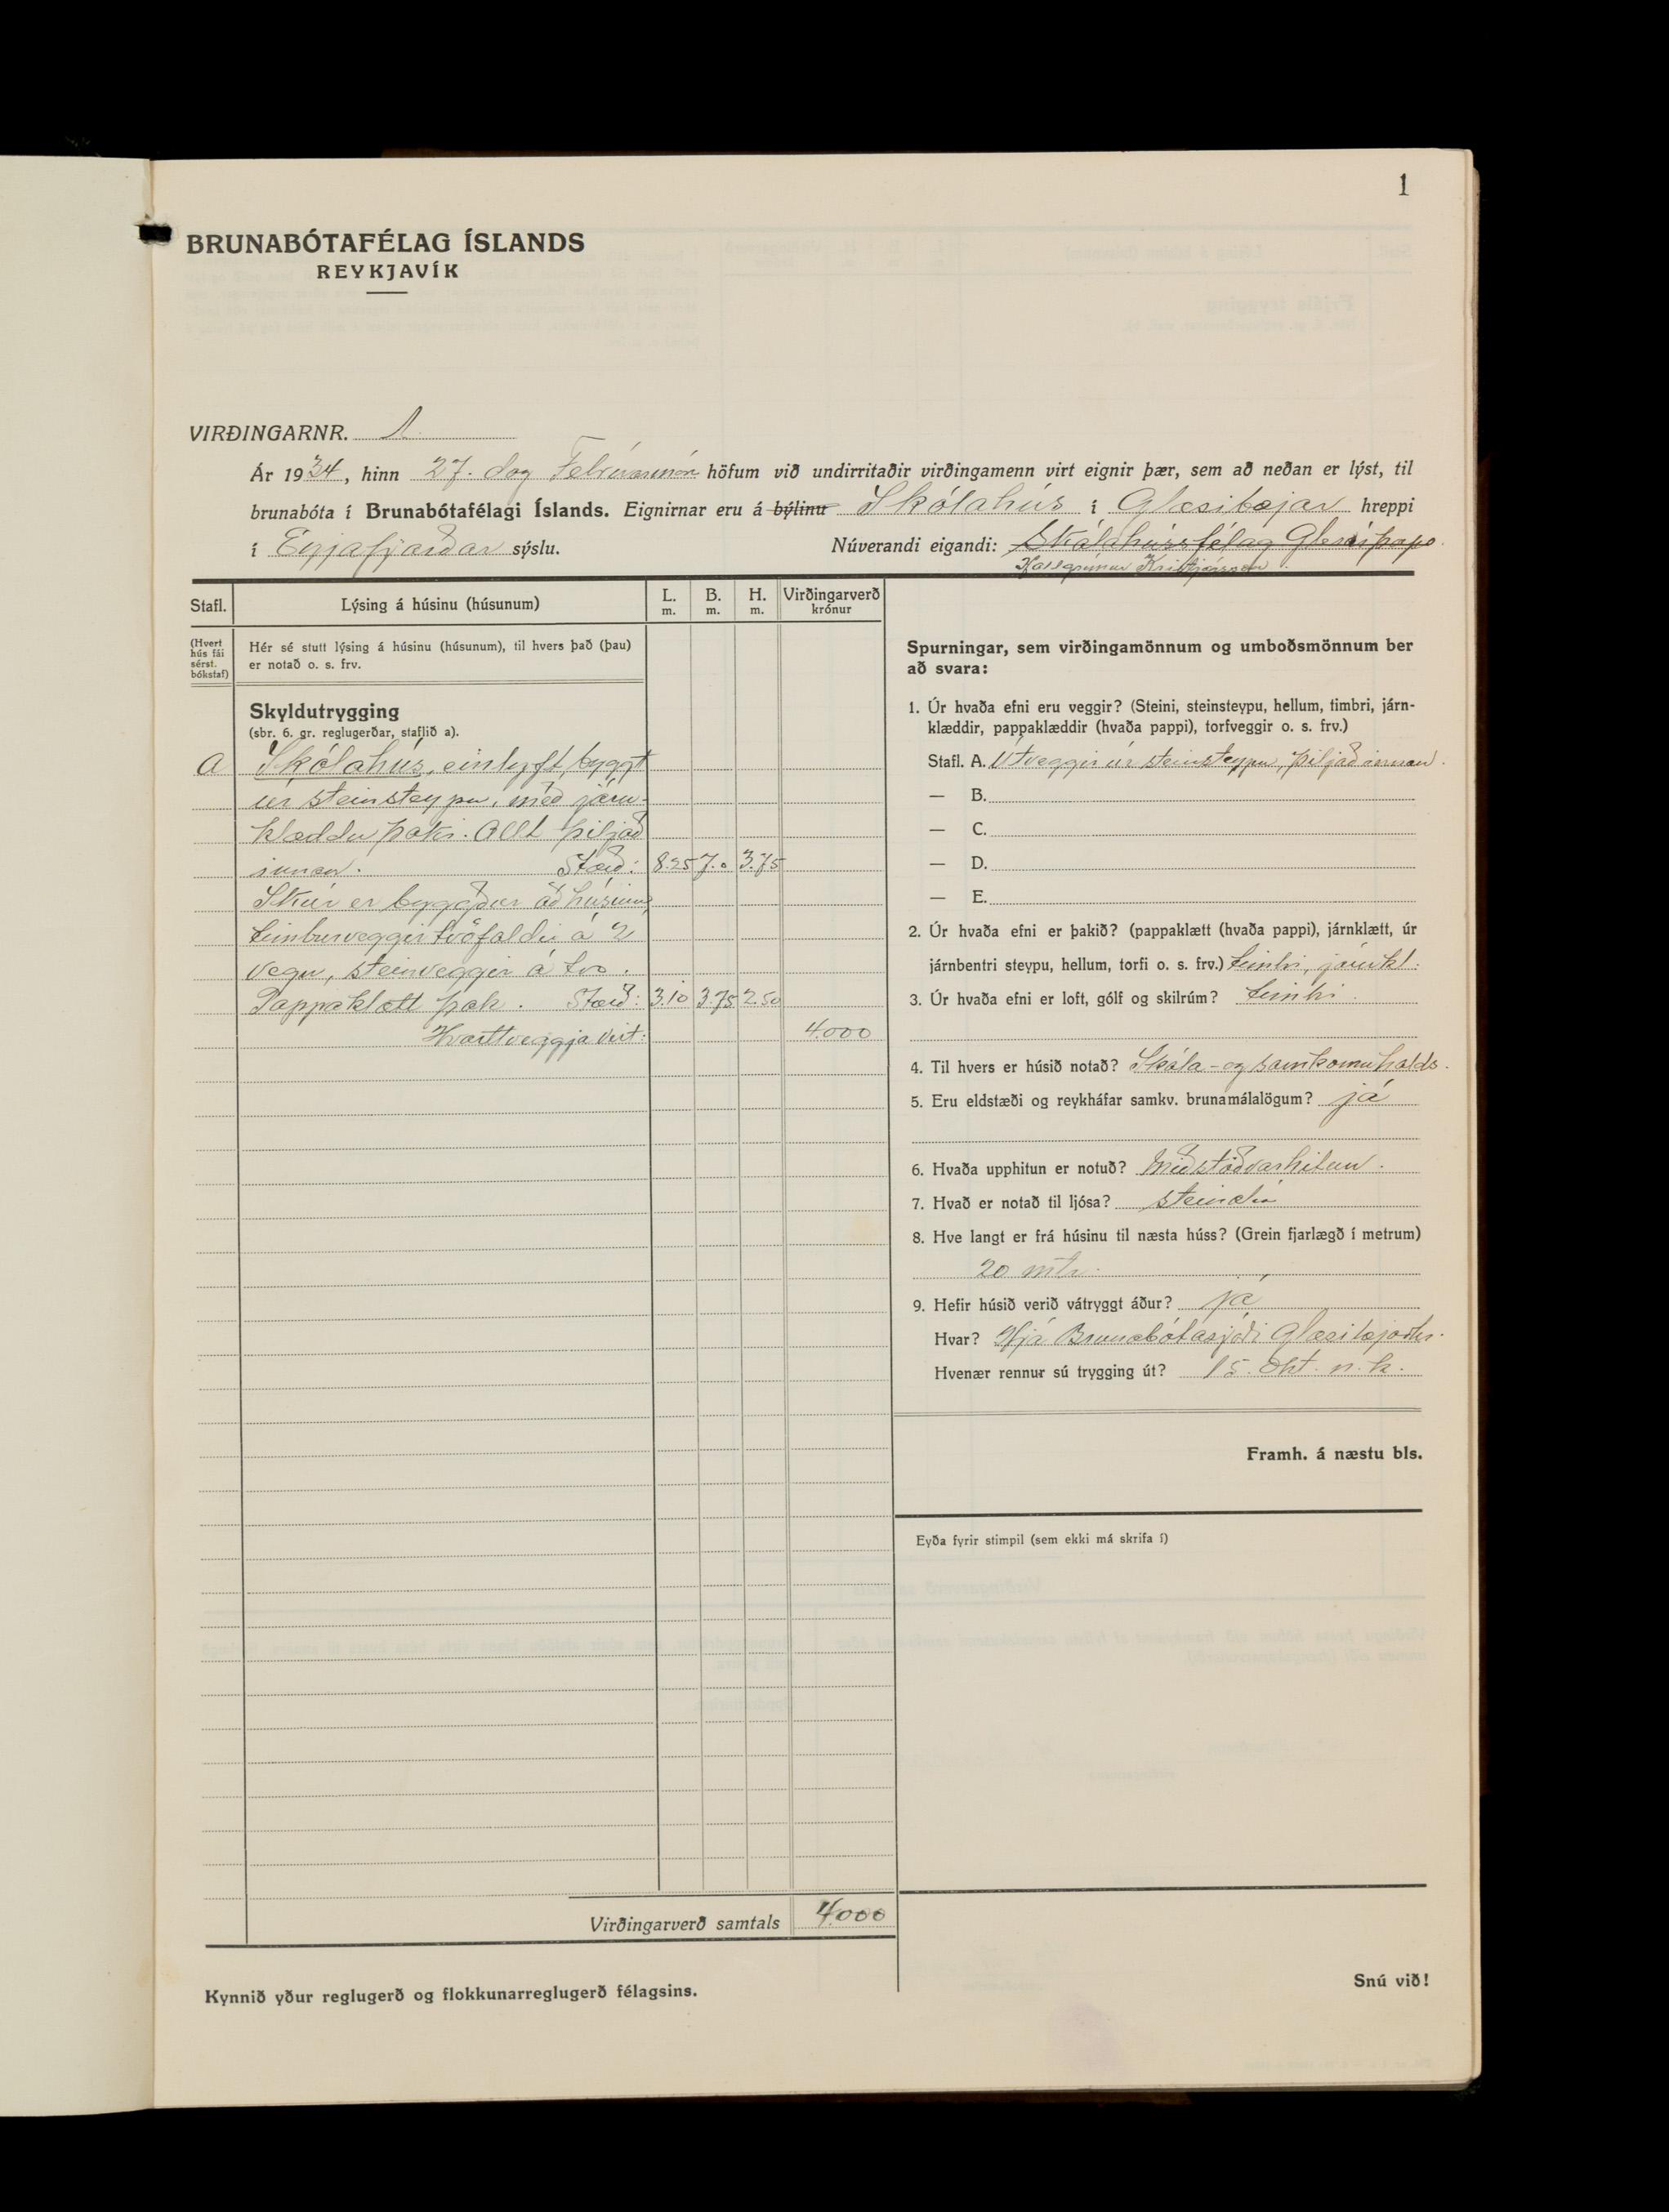 1
BRUNABÓTAFÉLAG ÍSLANDS
REYKJAVÍK
VIRÐINGARNR. 1
Ár 1934, hinn 27. dag Febrúarmán höfum við undirritaðir virðingamenn virt eignir þær, sem að neðan er lýst, til
brunabóta í Brunabótafélagi Íslands. Eignirnar eru á býlinu Skólahús í Glæsibæjar hreppi
í Eyjafjarðar sýslu. Núverandi eigandi: Skólahússfélag Glæsiþorps
Hallgrímur Kristjánsson
Stafl. Lýsing á húsinu (húsunum) L. m. B. m. H. m. Virðingarverð krónur
(Hvert hús fái sérst. bókstaf)
Hér sé stutt lýsing á húsinu (húsunum), til hvers það (þau)
er notað o. s. frv.
Skyldutrygging
(sbr. 6. gr. reglugerðar, staflið a).
a Skólahús, einlyft, byggt
úr steinsteypu, með járn-
klæddu þaki. Allt þiljað
innan. Stærð: 8.25 7.0 3.75
Skúr er byggður að húsinu,
timburveggir tvöfaldir á 2
vegu, steinveggir á tvo.
Pappaklætt þak. Stærð: 3.10 3.75 2.50
Hvarttveggja virt: 4.000
Virðingarverð samtals 4.000
Kynnið yður reglugerð og flokkunarreglugerð félagsins.
Spurningar, sem virðingamönnum og umboðsmönnum ber
að svara:
1. Úr hvaða efni eru veggir? (Steini, steinsteypu, hellum, timbri, járn-
klæddir, pappaklæddir (hvaða pappi), torfveggir o. s. frv.)
Stafl. A. Útveggir úr steinsteypu, þiljað innan.
— B.
— C.
— D.
— E.
2. Úr hvaða efni er þakið? (pappaklætt (hvaða pappi), járnklætt, úr
járnbentri steypu, hellum, torfi o. s. frv.) timbri, járnkl.
3. Úr hvaða efni er loft, gólf og skilrúm? timbri.
4. Til hvers er húsið notað? Skóla- og samkomuhalds.
5. Eru eldstæði og reykháfar samkv. brunamálalögum? já
6. Hvaða upphitun er notuð? Miðstöðvarhitun.
7. Hvað er notað til ljósa? steinolía
8. Hve langt er frá húsinu til næsta húss? (Grein fjarlægð í metrum)
20 mtr.
9. Hefir húsið verið vátryggt áður? já
Hvar? Hjá Brunabótasjóði Glæsibæjarhr.
Hvenær rennur sú trygging út? 15. Okt. n.k.
Framh. á næstu bls.
Eyða fyrir stimpil (sem ekki má skrifa í)
Snú við!